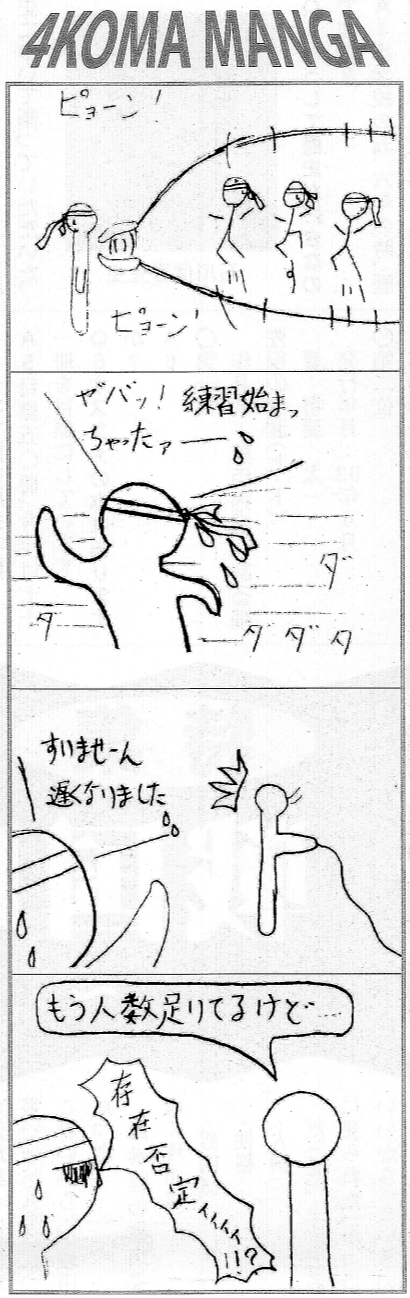 4KOMA MANGA
ピョーン!
ピョーン!
ヤバッ! 練習始まっ
ちゃったァー
ダ
ダ
ダ ダ ダ
すいませーん
遅くなりました
もう人数足りてるけど……
存在否定ィィィィ!!?